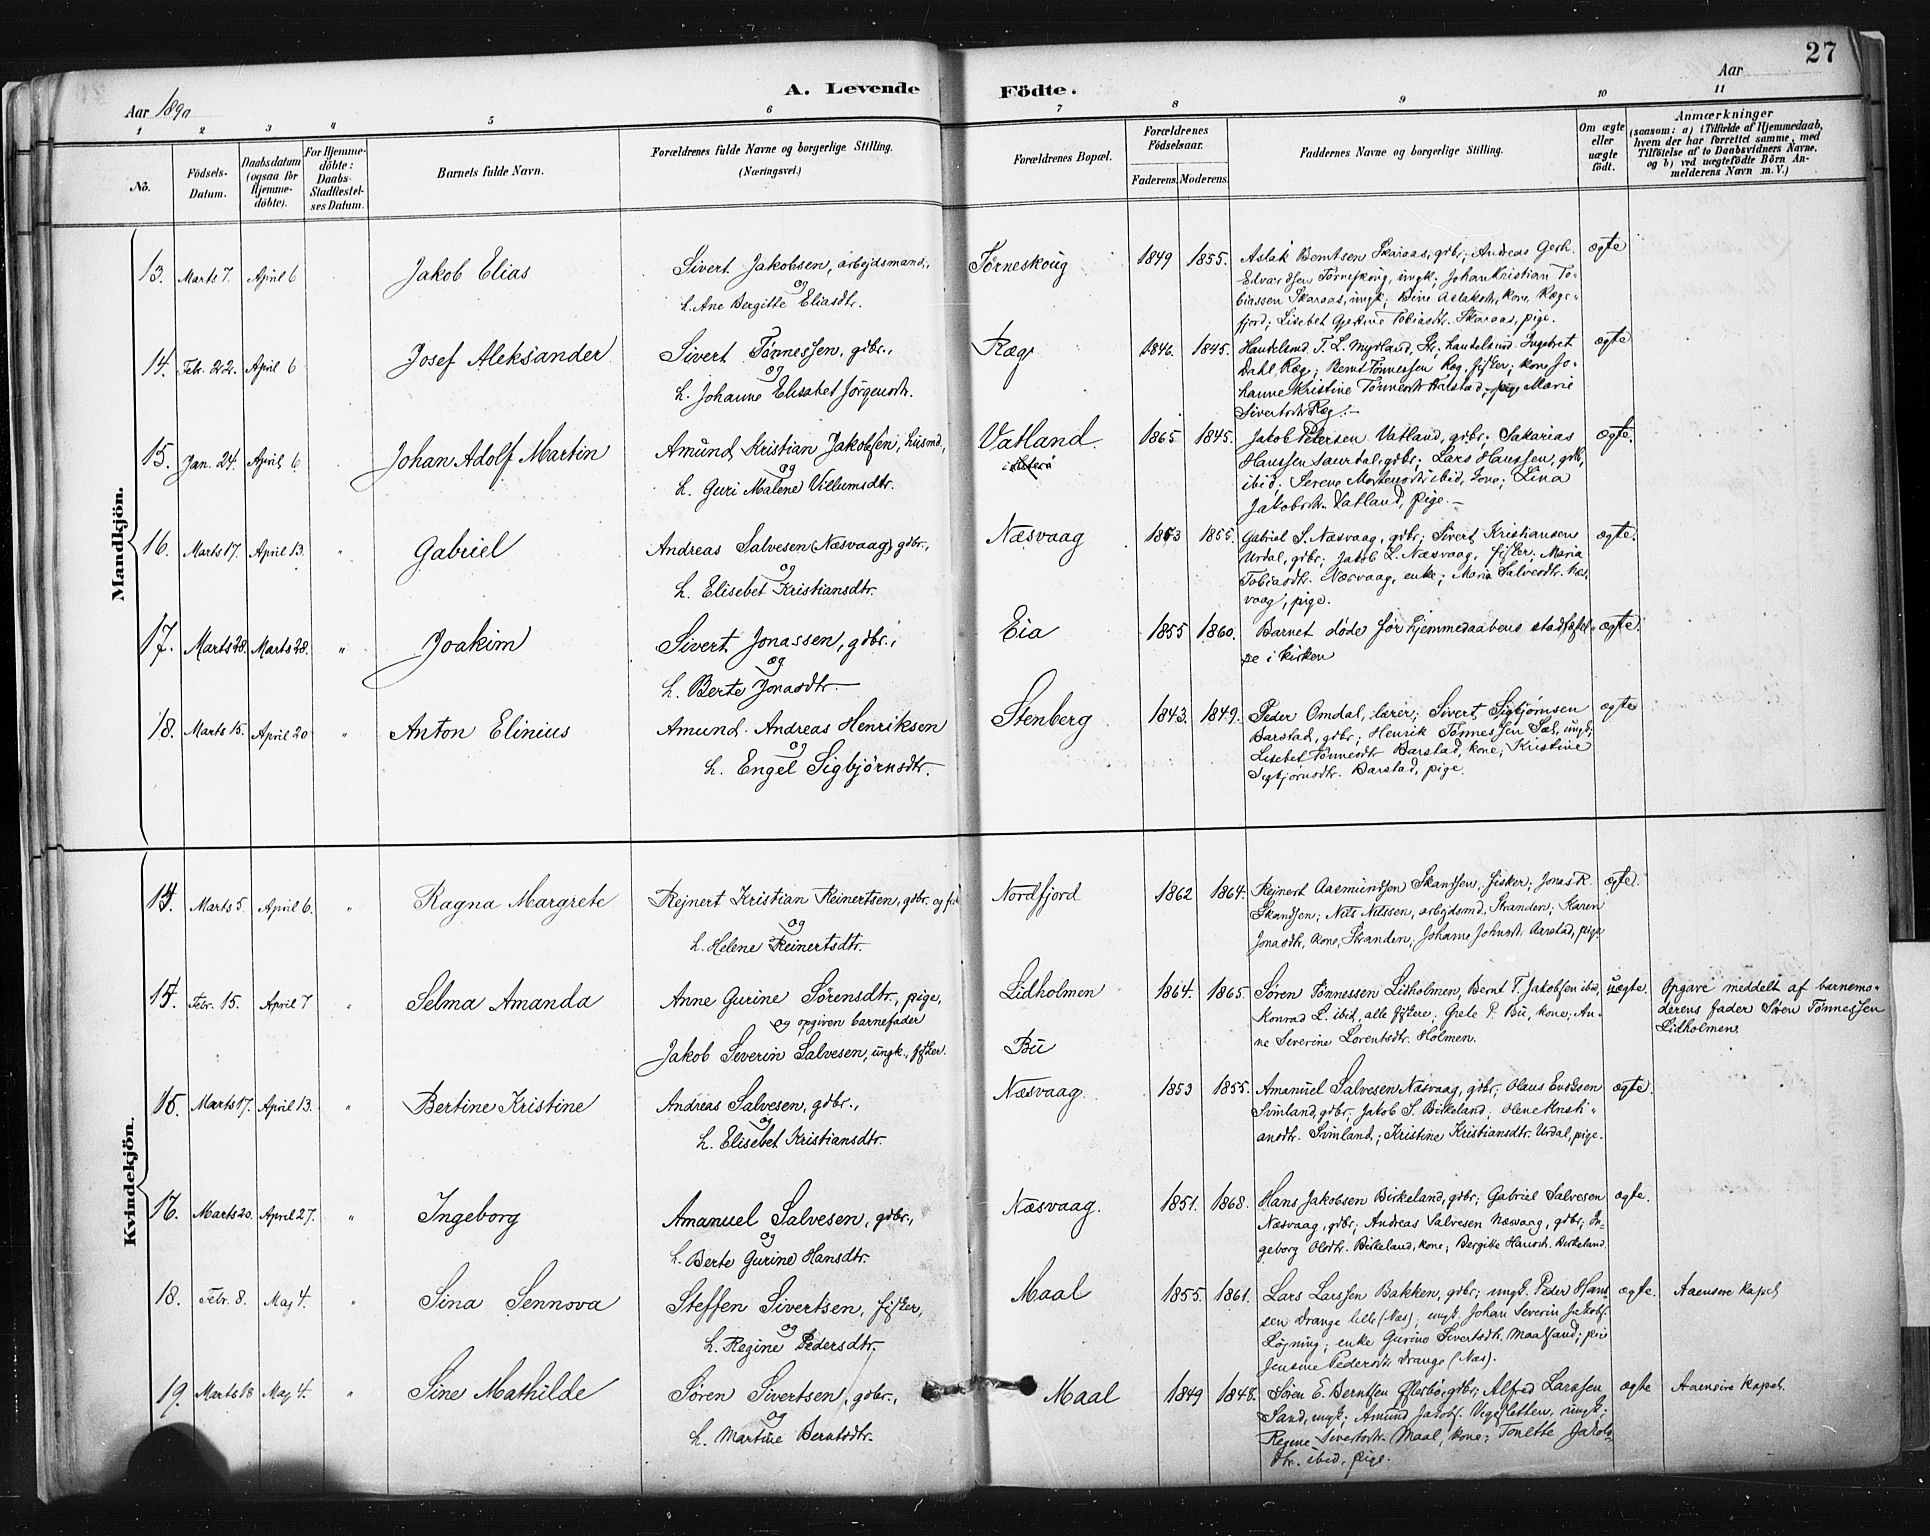 27
A. Levende Födte.
Aar 1890
Aar
1 2 3 4 5 6 7 8 9 10 11
No.
Födsels-Datum.
Daabsdatum (ogsaa för Hjemmedöbte).
For Hjemmedöbte: Daabs-Stadfæstelses Datum.
Barnets fulde Navn.
Forældrenes fulde Navne og borgerlige Stilling.
(Næringsvei.)
Forældrenes Bopæl.
Forældrenes Födselsaar.
Faderens. Moderens.
Faddernes Navne og borgerlige Stilling.
Om ægte eller uægte födt.
Anmærkninger
(saasom: a) i Tilfælde af Hjemmedaab,
hvem der har forrettet samme, med
Tilföielse af to Daabsvidners Navne,
og b) ved uegtefödte Börn An-
melderens Navn m. V.)
Mandkjön.
13. Marts 7 April 6 Jakob Elias Sivert Jakobsen, arbejdsmand, Tørneskoug 1849 1855. Aslak Berntsen Skaraas, gdbr; Andreas Gerh. ægte
og
h. Ane Bergitte Eliasdtr.
Edvardsen Tørneskoug, ungk; Johan Kristian To-
biassen Skaraas, ungk; Bine Aslaksdtr, kone, Ræge-
fjord; Lisebet Gjertine Tobiasdtr. Skaraas, pige.
14. Febr. 22. April 6 Josef Aleksander Sivert Tönnessen, gdbr., Ræg 1846. 1845. Handelsmd. T. L. Myrland, ægte
og
h. Johanne Elisabet Jörgensdtr.
Dahl, Ræg; Bernt Tönnessen Ræg, fisker; kone Jo-
hanne Kristine Tönnesdtr Aarstad, pige Marie
Sivertsdtr Ræg.
15. Jan. 24. April 6 Johan Adolf Martin Amund Kristian Jakobsen, husmd, Vatland 1865 1845. Jakob Petersen Vatland, gdbr; Sakarias ægte.
og
h. Guri Malene Villumsdtr.
Hanssen Saurdal, gdbr; Lars Hanssen, gdbr,
ibid; Serene Mortensdtr ibid, kone; Lina
Jakobsdtr. Vatland, pige.
16. Marts 17. April 13. " Gabriel Andreas Salvesen (Næsvaag) gdbr., Næsvaag 1853 1855. Gabriel S. Næsvaag, gdbr; Sivert Kristiansen ægte.
og
h. Elisebet Kristiansdtr.
Urdal, gdbr; Jakob L. Næsvaag, fisker; Maria
Tobiasdtr. Næsvaag, enke; Maria Salvesdtr. Næs-
vaag, pige.
17. Marts 28. Marts 28. " Joakim Sivert Jonassen, gdbr., Eia 1855 1860. Barnet døde før hjemmedaabens stadfæstel- ægte.
og
h. Berte Jonasdtr.
se i kirken
18. Marts 15. April 20 " Anton Elinius Amund Andreas Henriksen Stenberg 1843. 1849. Peder Omdal, lærer; Sivert Sigbjørnsen ægte
og
h. Engel Sigbjørnsdtr.
Barstad, gdbr; Henrik Tønnessen Sæl, ungk;
Lisebet Tønnesdtr Barstad, kone; Kristine
Sigbjørnsdtr. Barstad, pige.
Kvindekjön.
14. Marts 5. April 6. " Ragna Margrete Rejnert Kristian Reinertsen, gdbr. og Nordfjord 1862 1864. Rejnert Aasmundsen Skandsen, fisker; Jonas R. ægte.
og
h. Helene Reinertsdtr.
Skandsen; Nils Nilssen, arbejdsmd, Stranden; Karen
Jonasdtr, kone, Stranden; Johanne Johnsdtr. Aarstad, pige
15. Febr. 15. April 7 " Selma Amanda Anne Gurine Sørensdtr., pige, Lidholmen 1864. 1865. Søren Tønnessen Lidholmen, Bernt T. Jakobsen ibid, uægte. Opgave meddelt af barnemo-
og opgiven barnefader
Konrad L. ibid, alle fiskere; Grete P. Bu, kone; An- derens fader Søren Tønnessen
Jakob Severin Salvesen, ungk., fisker. Bu
ne Severine Lorentsdtr. Holmen. Lidholmen.
16. Marts 17. April 13. " Bertine Kristine Andreas Salvesen, gdbr., Næsvaag 1853 1855. Amanuel Salvesen Næsvaag, gdbr; Olaus Evensen ægte.
og
h. Elisebet Kristiansdtr.
Svinland, gdbr; Jakob S. Birkeland; Olene Kristi-
ansdtr. Svinland; Kristine Kristiansdtr. Urdal, pige.
Marts 20. April 27. " Ingeborg Amanuel Salvesen, gdbr., Næsvaag. 1851. 1868. Hans Jakobsen Birkeland, gdbr; Gabriel Salvesen ægte.
og
h. Berte Gurine Hansdtr.
Næsvaag, gdbr; Andreas Salvesen Næsvaag, gdbr; In-
geborg Olsdtr. Birkeland, kone; Bergitte Hansdt. Birkeland
18. Febr. 8. Maj 4. " Sina Sennova Steffen Sivertsen, fisker, Maal 1855. 1861. Lars Larssen Bakken, gdbr; ungk. Peder Hans- ægte. Aaensire kapel
og
h. Regine Pedersdtr.
sen Drange lille (Næs); ungk. Johan Severin Jakobs.
Løgning; enke Gurine Sivertsdtr. Maalsand; pige
Jensine Pedersdtr Drange (Næs).
19. Marts 18 Maj 4. " Sine Mathilde Søren Sivertsen, gdbr., Maal 1849 1848. Søren E. Berntsen gdbr; Alfred Larssen ægte Aaensire kapel.
og
h. Martine Berntsdtr.
Sand, ungk; Amund Jakobs. ungk;
Regine Sivertsdtr. Maal, kone; Tonette Jakobs-
dtr. ibid, pige.